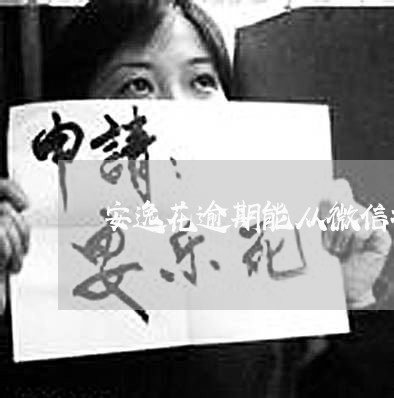 申請：
安逸花逾期能从微信
安乐死